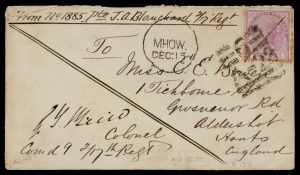 From No 1885 Pte J. A. Blanchard 2/17 Regt
MHOW.
DEC: 13
To
Miss C. E.
1 Tichborne
Grosvenor Rd
Aldershot
Hants
England
Colonel
Comd g 2/17th Regt